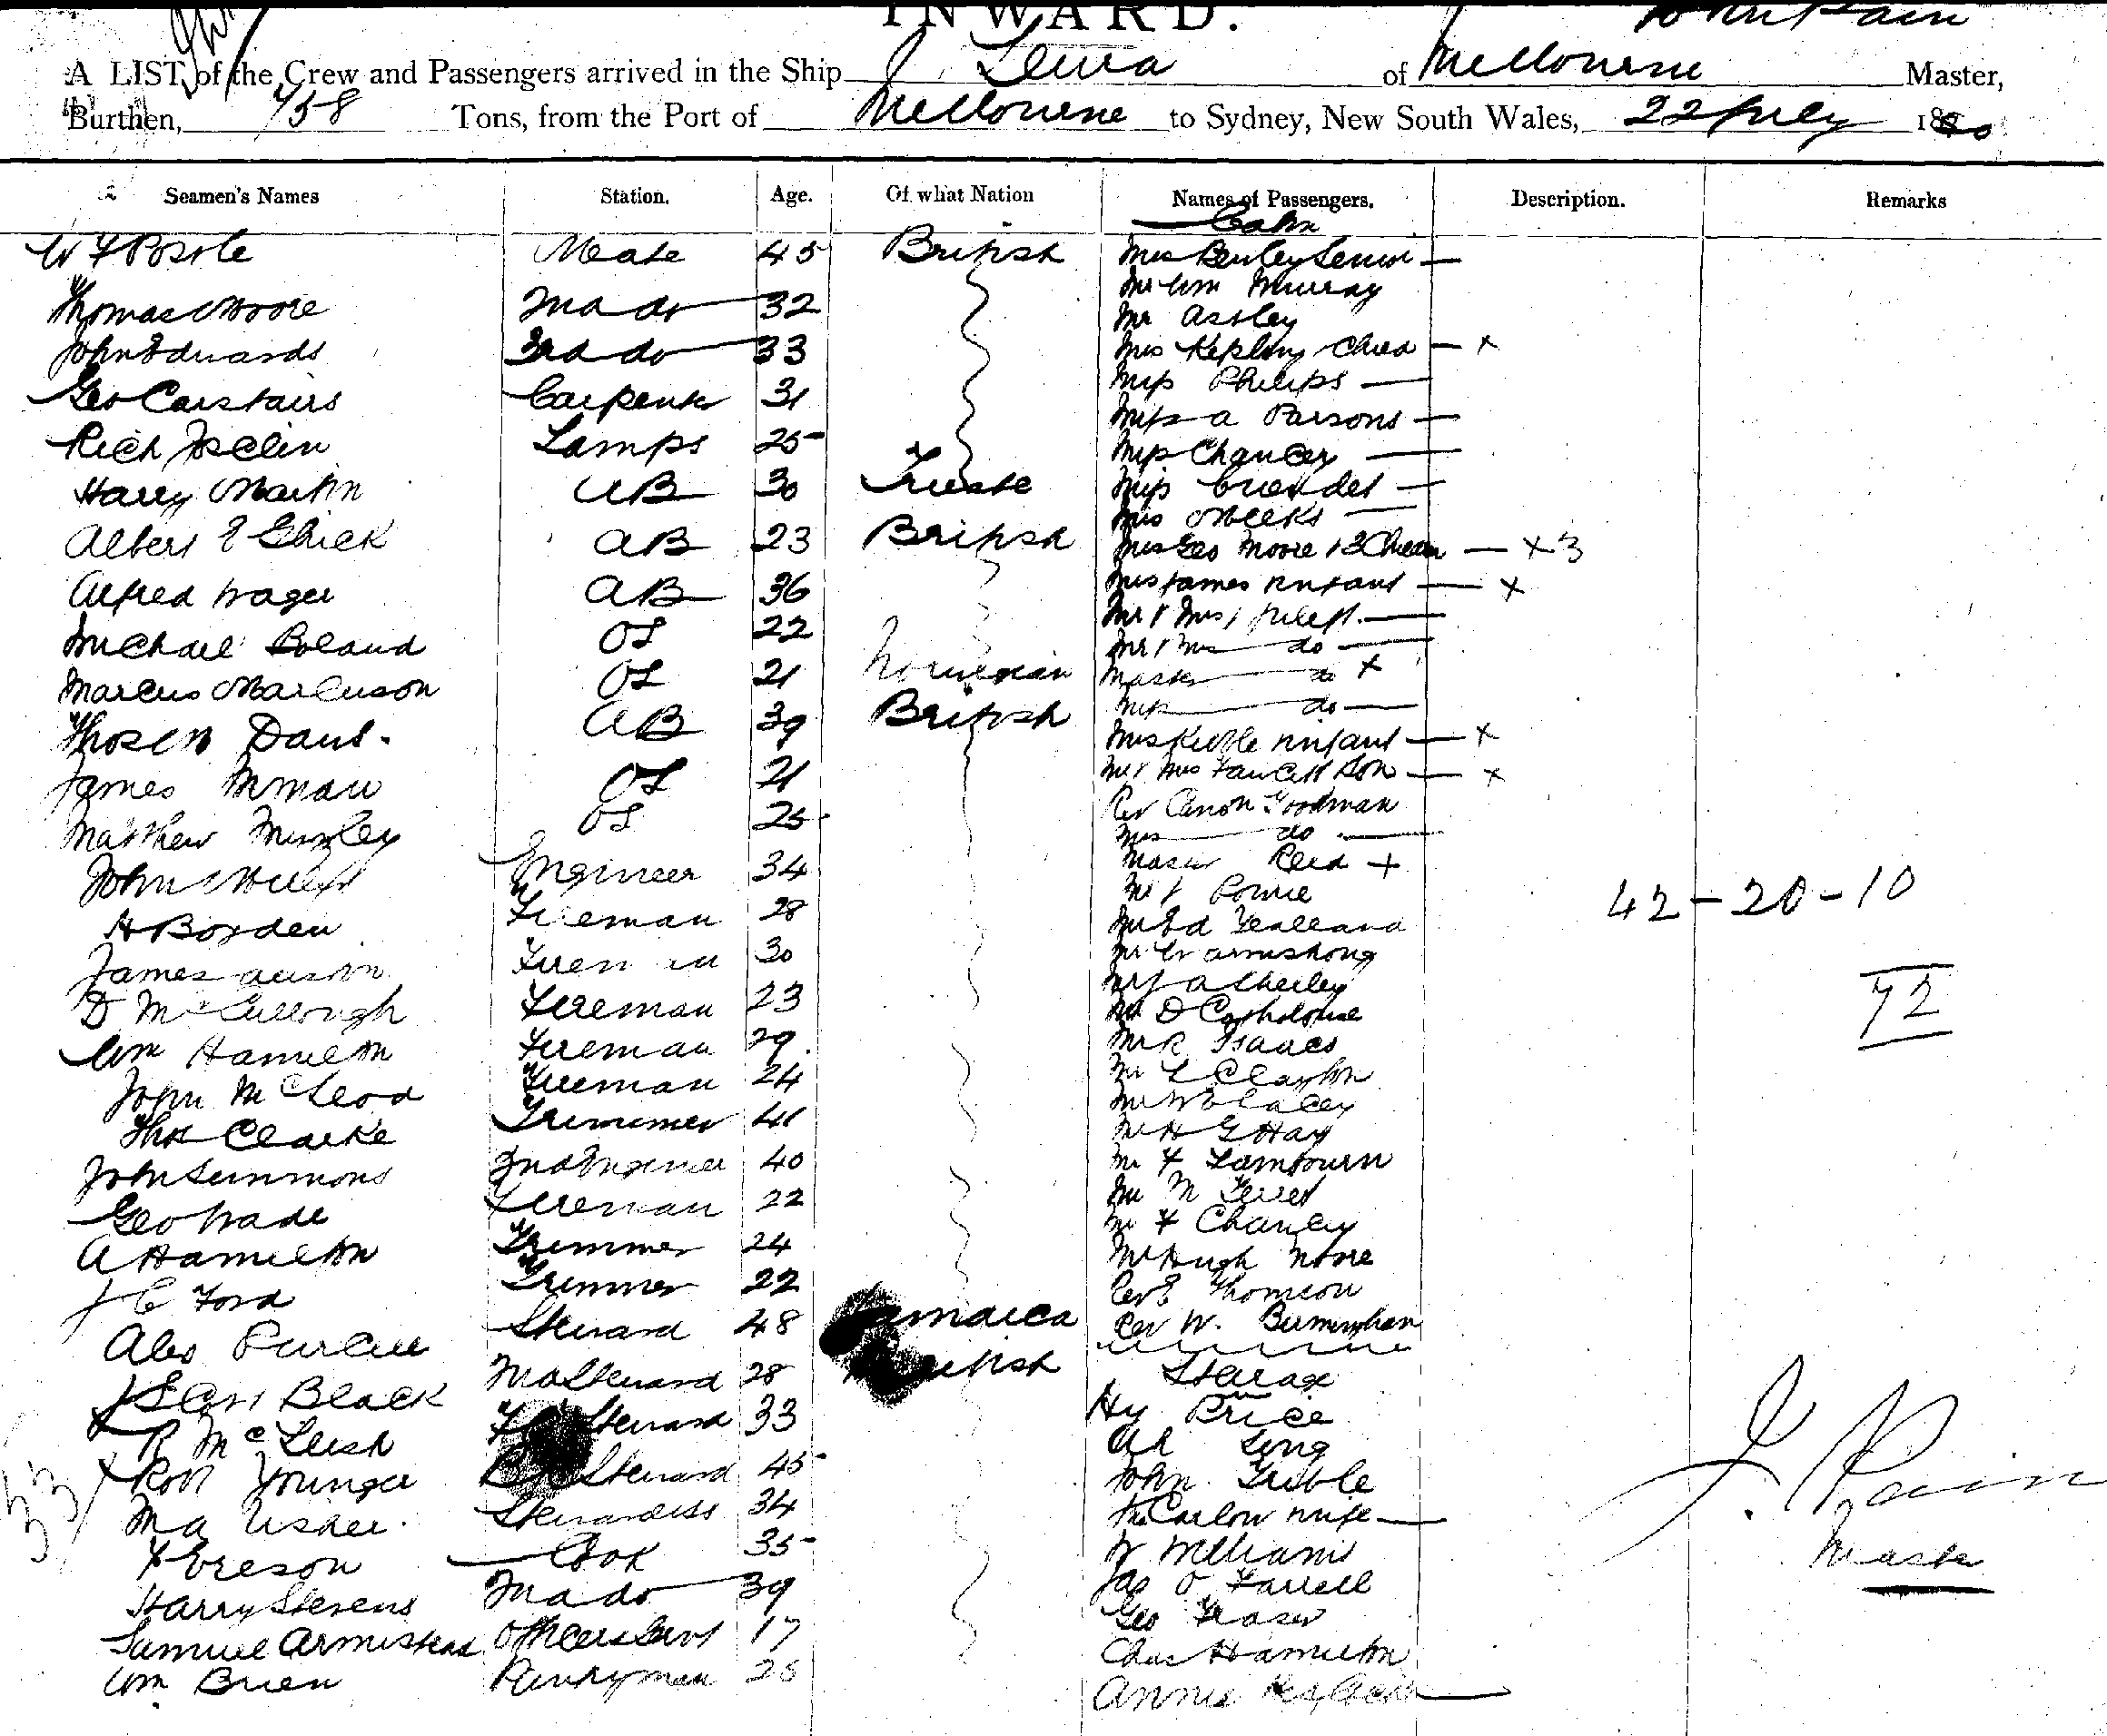 INWARD.
John Pain
A LIST of the Crew and Passengers arrived in the Ship of Melbourne Master,
Burthen, 758 Tons, from the Port of Melbourne to Sydney, New South Wales, 22 July 1880
Seamen's Names Station. Age. Of what Nation Names of Passengers. Description. Remarks
Cabin
Mate 45 British Mrs Senior
Mr Wm Murray
Thomas Moore 2nd do 32 Mr Astley
John Edwards 3rd do 33 Mrs Child x
Geo Carstairs Carpenter 31 Miss Philips
Miss A Parsons
Rich Joclin Lamps 25 Miss
Harry Martin AB 30 Trieste Miss
Mrs Meeks
Albert E AB 23 British Mrs Geo Moore & 3 Chdren x 3
Alfred Wager AB 36 Mrs James Infant x
Mr & Mrs
Michael Boland OS 22 Mr & Mrs do
Marcus Marcuson OS 21 Norwegian Master do x
Thos M AB 39 British Miss do
Mrs Infant x
James Inman OS 21 Mr & Mrs Faucett Son x
Rev Canon Goodman
Matthew OS 25 Mrs do
Master Reid +
John Engineer 34 Mr J
42-20-10
H Boyden Fireman 28 Mr Ed
Mr W Armstrong
James Fireman 30 Mr J A
72
D McCullough Fireman 23 Mr D
Wm Hamilton Fireman 29 Mr R Isaacs
John McLeod Fireman 24 Mr L Clayton
Mr W E Lacey
Thos Clarke Trimmer 41 Mr H G Hay
John Simmons 2nd Engineer 40 Mr F Lambourn
Geo Wade Fireman 22 Mr M
Mr F
A Hamilton Trimmer 24 Mr Hugh Moore
J C Ford Trimmer 22 Rev E Thomson
Alex Purcell Steward 48 Jamaica Rev W. Birmingham
Black 2nd Steward 28 British Steerage
R McLeish Steward 33 Hy Price
Ah Gong
Robt Younger Steward 45 John Tribble
33 Usher Stewardess 34 Carlow wife
F Ereson Cook 35 W Williams
J. Pain
Master
Harry Stevens 2nd do 39 Jas O Farrell
Geo Fraser
Samuel Armistead Officers Servt 17 Chas Hamilton
Wm Brien Pantryman 25 Annie